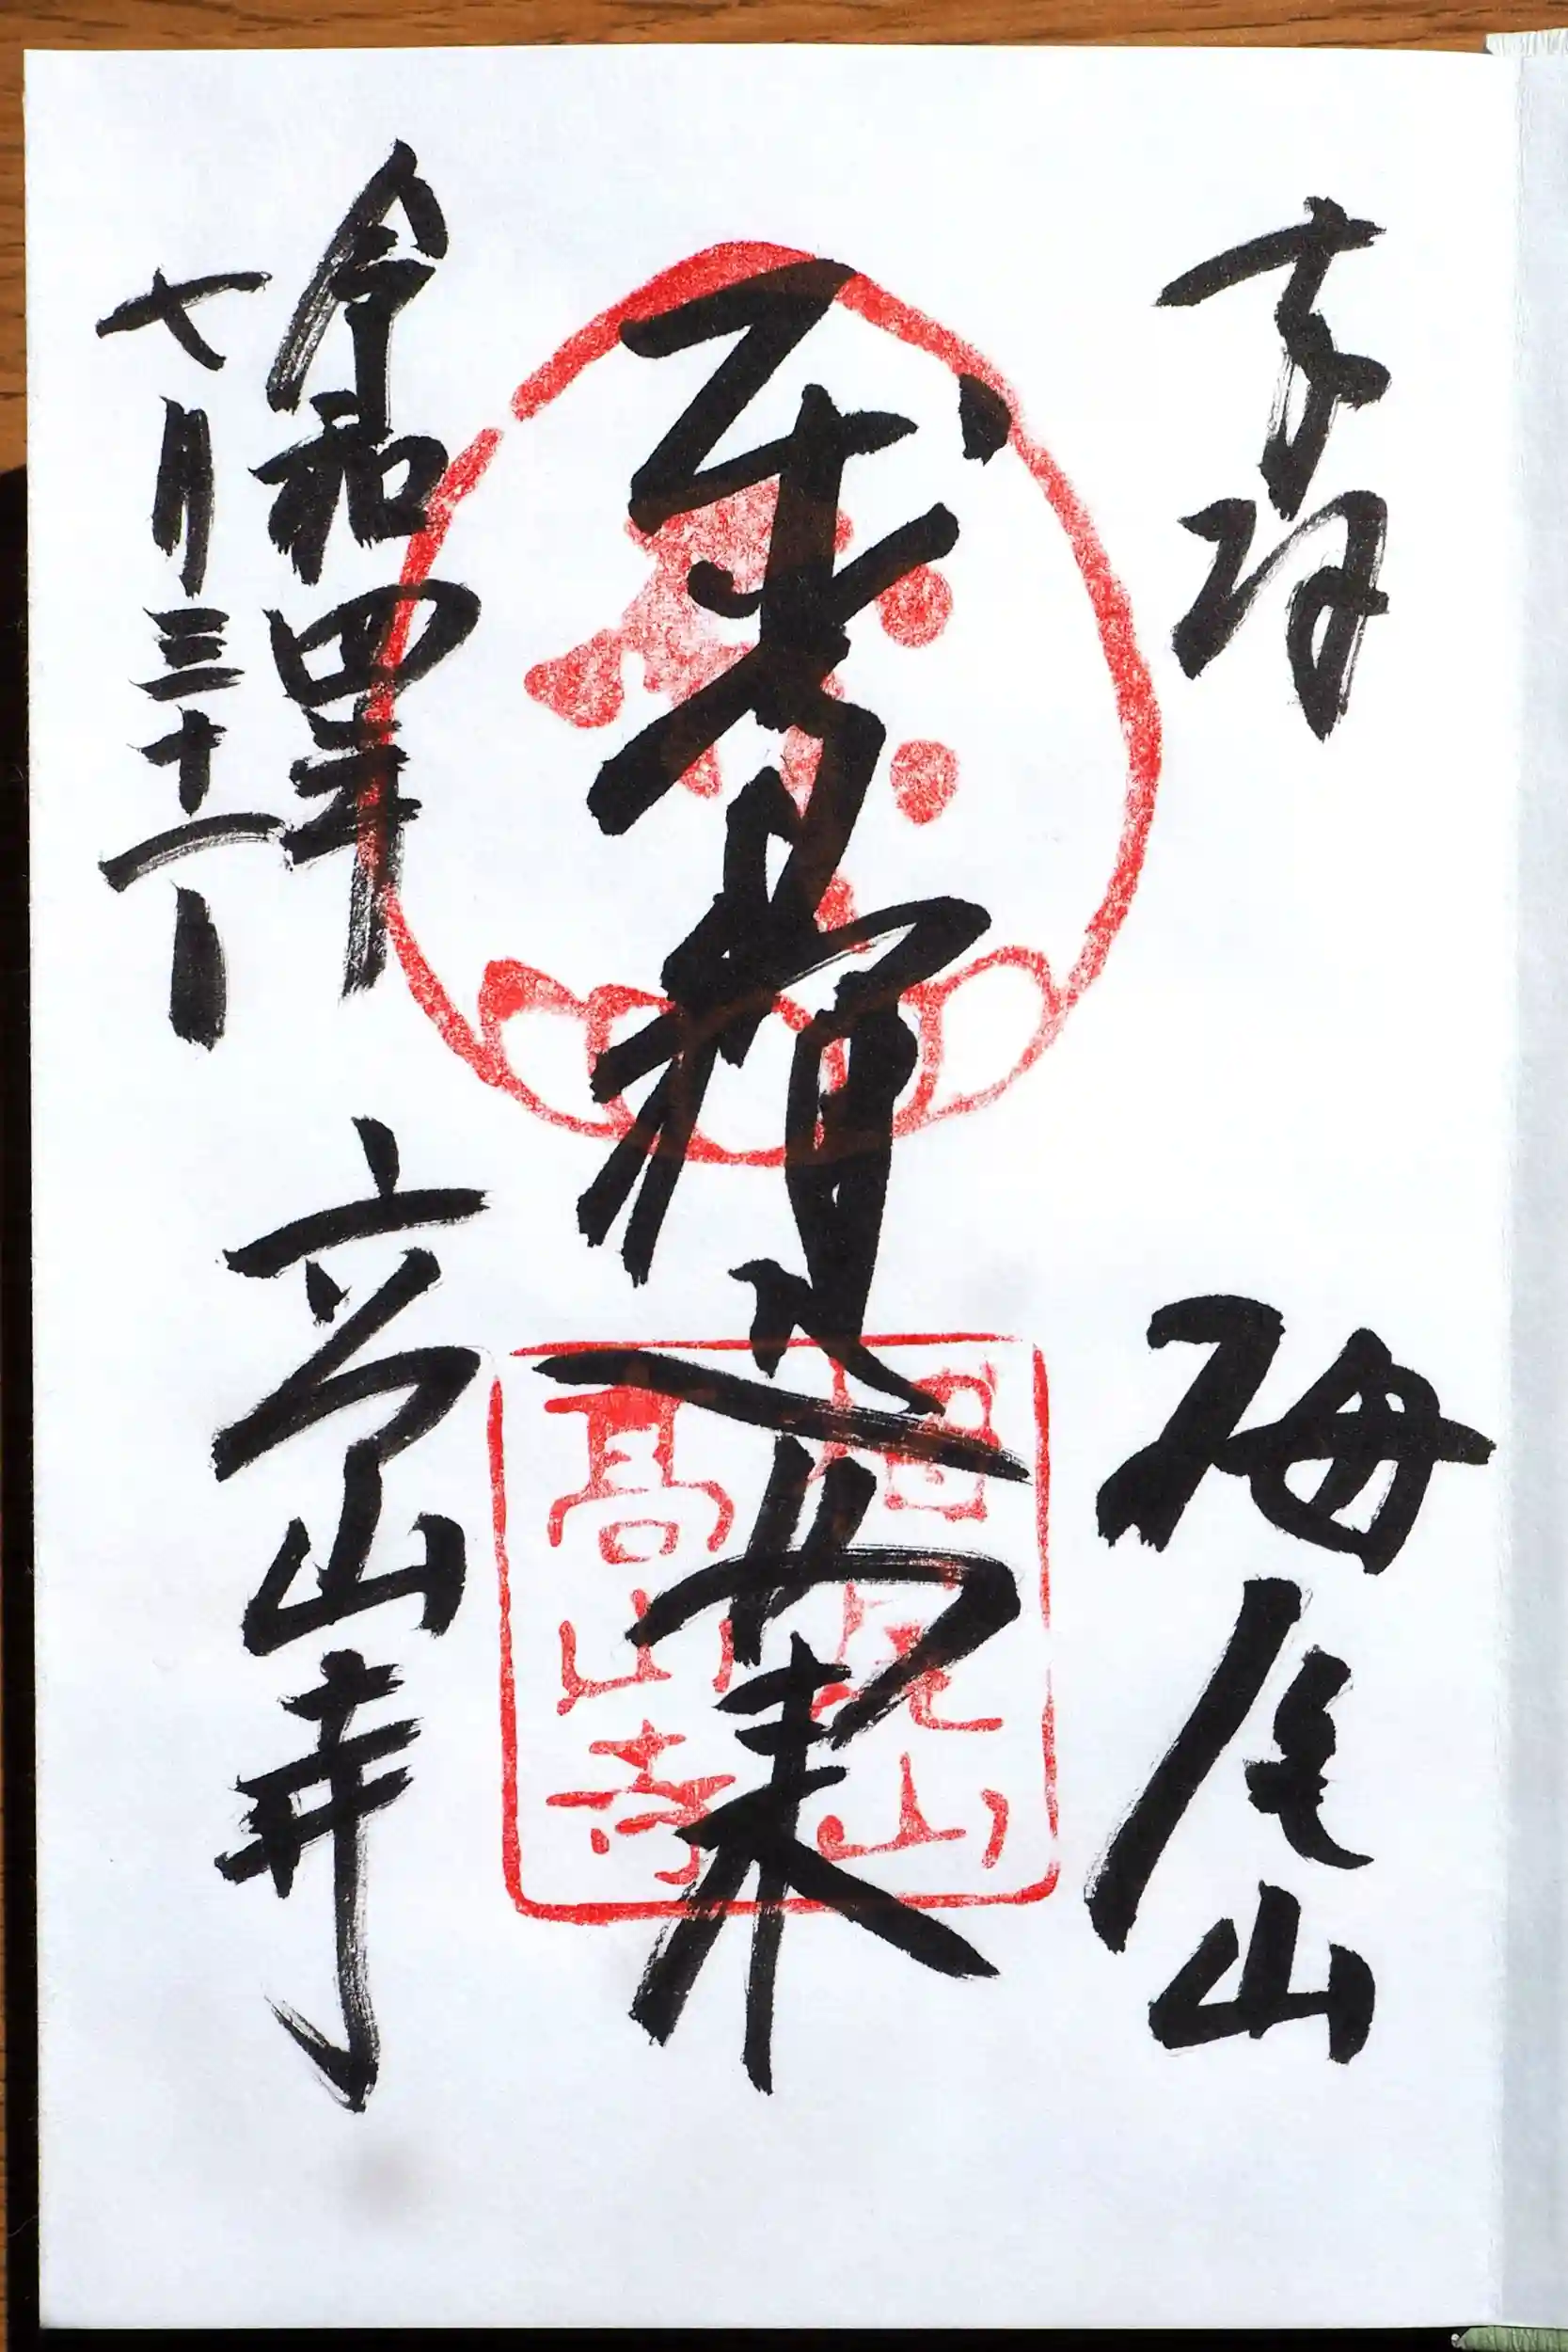 奉拝
栂尾山
釈迦如来
令和四年
七月三十一日
高山寺
栂尾山
高山寺